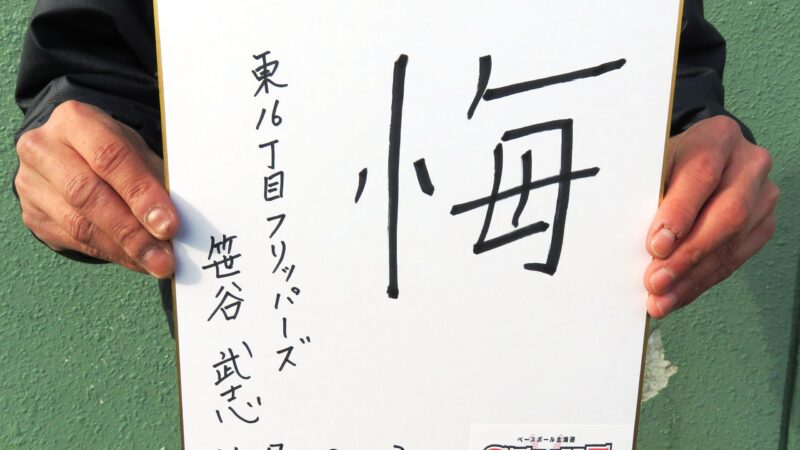 悔
東16丁目フリッパーズ
笹谷 武志
ベースボール北海道